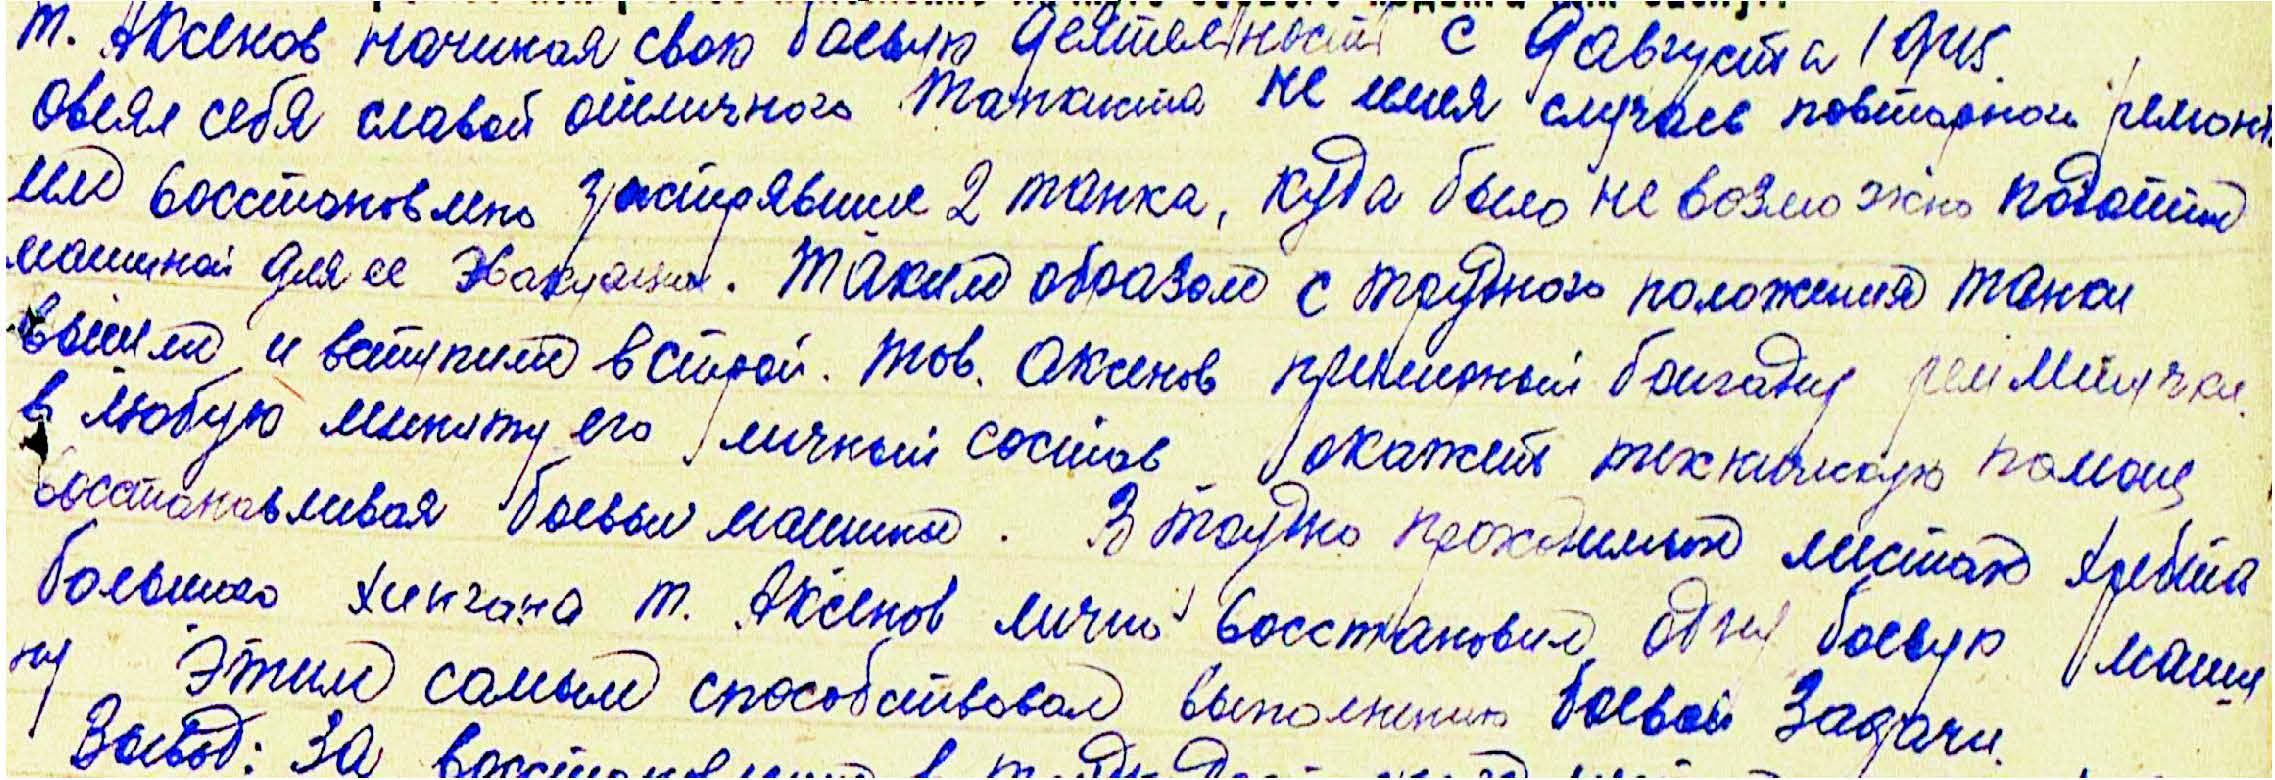 т. Аксенов начиная свою боевую деятельность с 9 августа 1945.
овеял себя славой отличного танкиста не имея случаев повторного ремонт
им восстановлено застрявшие 2 танка, куда было не возможно подойти
машиной для ее эвакуации. Таким образом с трудного положения танки
вышли и вступили в строй. тов. Аксенов бригаду
в любую минуту его личный состав окажет техническую помощ
восстанавливая боевые машины. В трудно проходимых местах хребта
большого хингана т. Аксенов лично восстановил одну боевую маши
ну Этим самым способствовал выполнению боевой задачи.
Вывод: За